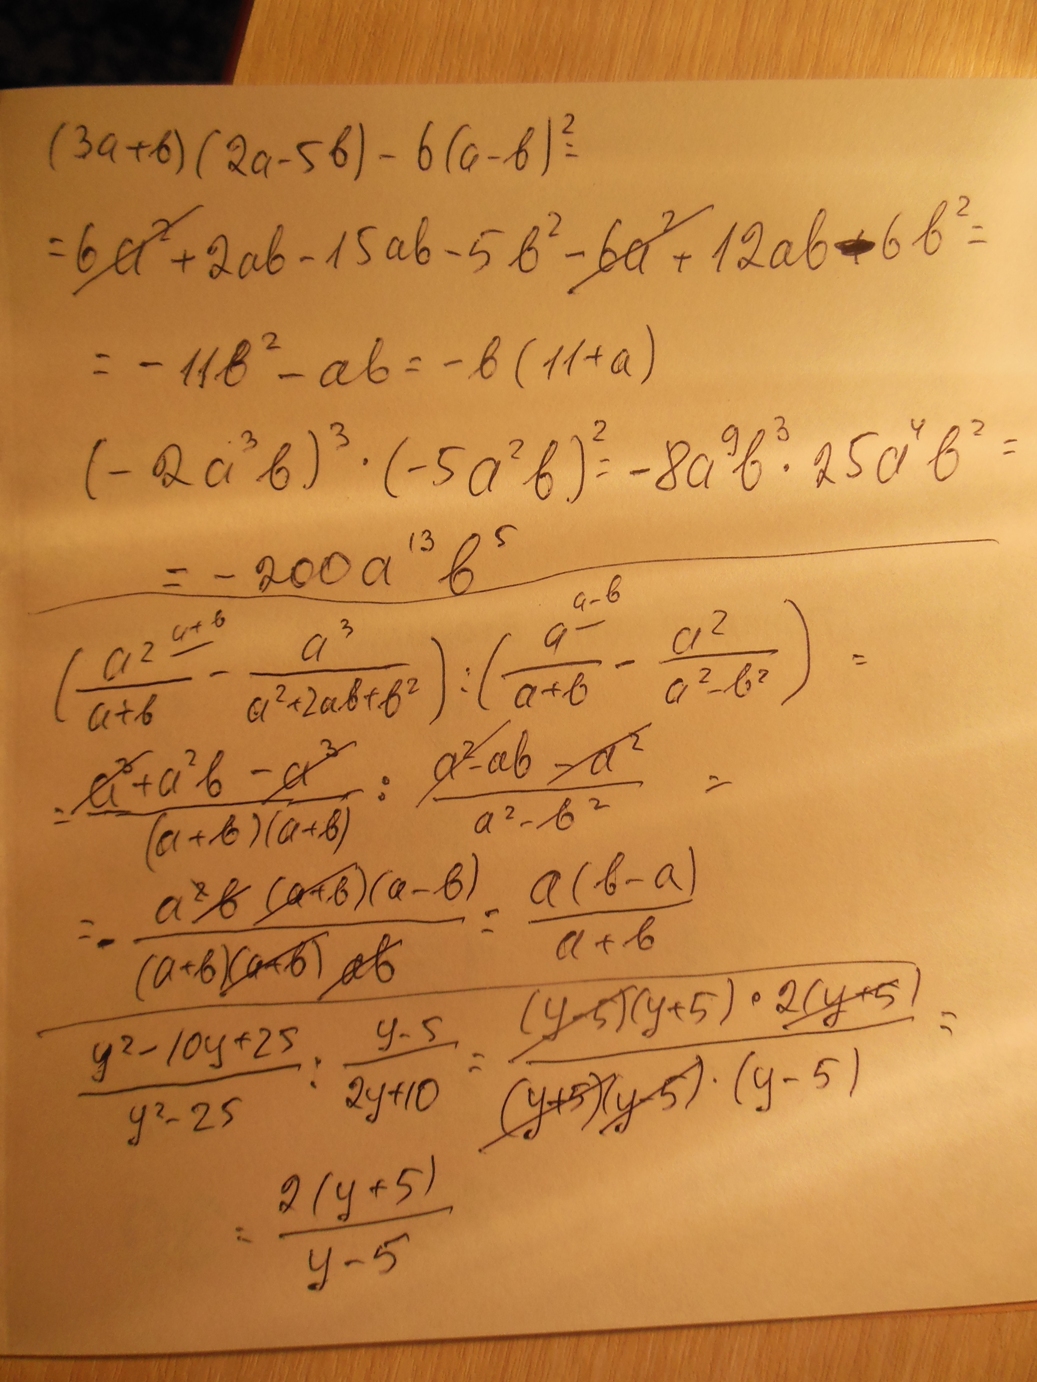 (3a+b)(2a-5b) - 6(a-b)²=
=6a²+2ab-15ab-5b²-6a²+12ab-6b²=
= -11b²-ab = -b(11+a)
(-2a³b)³·(-5a²b)²=-8a⁹b³·25a⁴b²=
= -200a¹³b⁵
(a² ᵃ⁺ᵇ/(a+b) - a³/(a²+2ab+b²)) : (a ᵃ⁻ᵇ/(a+b) - a²/(a²-b²)) =
= (a³+a²b-a³)/((a+b)(a+b)) : (a²-ab-a²)/(a²-b²) =
=- (a²b(a+b)(a-b))/((a+b)(a+b)ab) = a(b-a)/(a+b)
(y²-10y+25)/(y²-25) : (y-5)/(2y+10) = ((y-5)(y+5)·2(y+5))/((y+5)(y-5)·(y-5)) =
= 2(y+5)/(y-5)